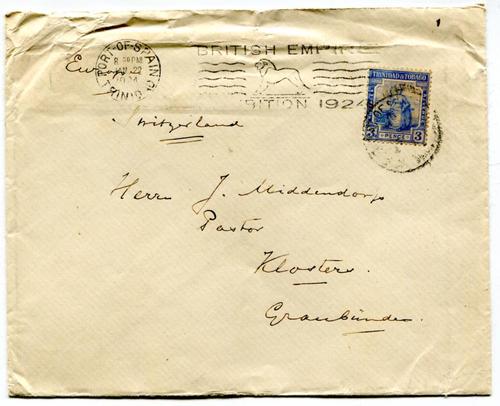 PORT-OF-SPAIN
8 PM
22
1924
TRINIDAD
BRITISH EMPIRE
EXHIBITION 1924
TRINIDAD & TOBAGO
3 PENCE 3
Switzerland
Herrn J. Middendorp
Pastor
Klosters.
Graubünden.